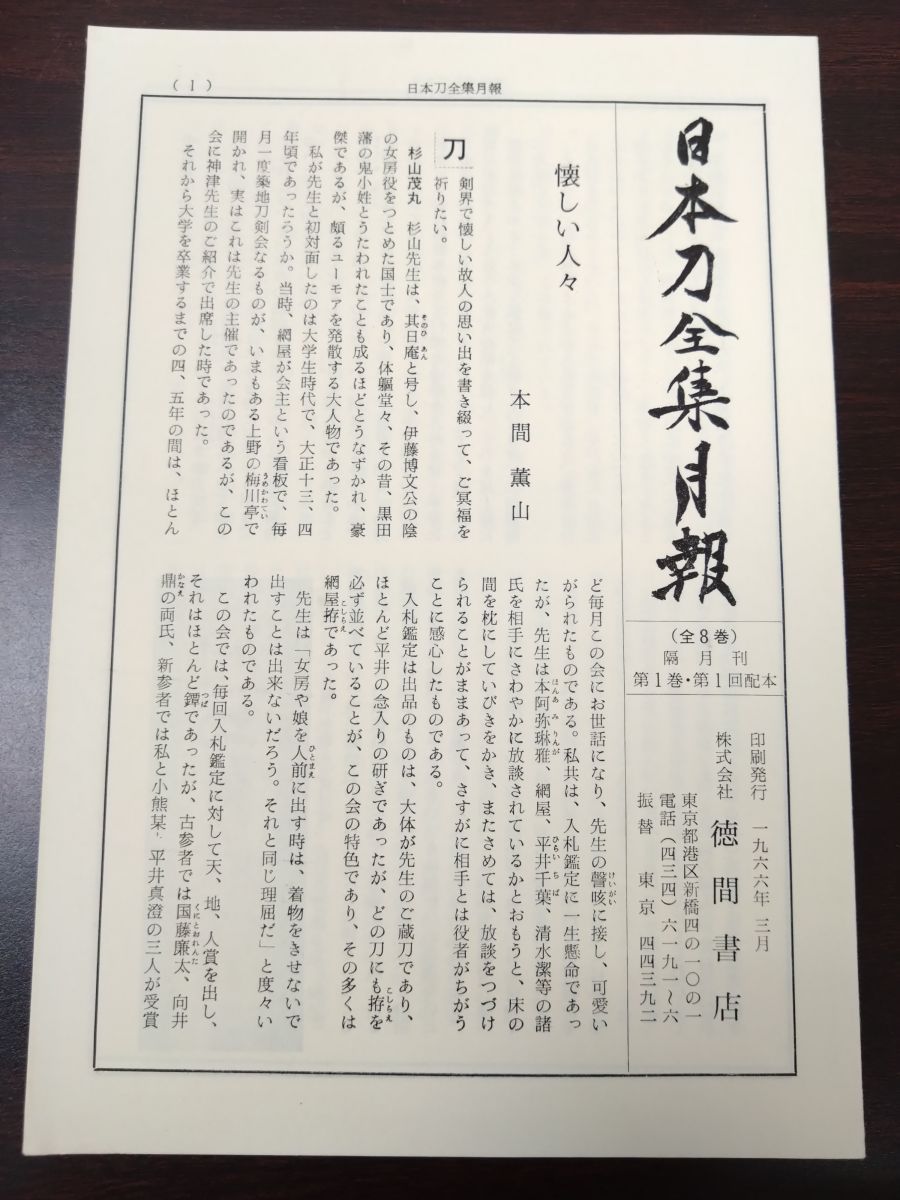 (1)
日本刀全集月報
日本刀全集月報
(全8巻)
隔月刊
第1巻・第1回配本
印刷発行 一九六六年三月
株式会社 徳間書店
東京都港区新橋四の一〇の一
電話(四三四)六一九一~六
振替 東京 四四三九二
懐しい人々
本間薫山
刀剣界で懐しい故人の思い出を書き綴って、ご冥福を
祈りたい。
杉山茂丸 杉山先生は、其日庵と号し、伊藤博文公の陰
の女房役をつとめた国士であり、体軀堂々、その昔、黒田
藩の鬼小姓とうたわれたことも成るほどとうなずかれ、豪
傑であるが、頗るユーモアを発散する大人物であった。
私が先生と初対面したのは大学生時代で、大正十三、四
年頃であったろうか。当時、網屋が会主という看板で、毎
月一度築地刀剣会なるものが、いまもある上野の梅川亭で
開かれ、実はこれは先生の主催であったのであるが、この
会に神津先生のご紹介で出席した時であった。
それから大学を卒業するまでの四、五年の間は、ほとん
ど毎月この会にお世話になり、先生の謦咳に接し、可愛い
がられたものである。私共は、入札鑑定に一生懸命であっ
たが、先生は本阿弥琳雅、網屋、平井千葉、清水潔等の諸
氏を相手にさわやかに放談されているかとおもうと、床の
間を枕にしていびきをかき、またさめては、放談をつづけ
られることがままあって、さすがに相手とは役者がちがう
ことに感心したものである。
入札鑑定は出品のものは、大体が先生のご蔵刀であり、
ほとんど平井の念入りの研ぎであったが、どの刀にも拵を
必ず並べていることが、この会の特色であり、その多くは
網屋拵であった。
先生は「女房や娘を人前に出す時は、着物をきせないで
出すことは出来ないだろう。それと同じ理屈だ」と度々い
われたものである。
この会では、毎回入札鑑定に対して天、地、人賞を出し、
それはほとんど鐔であったが、古参者では国藤廉太、向井
鼎の両氏、新参者では私と小熊某、平井真澄の三人が受賞